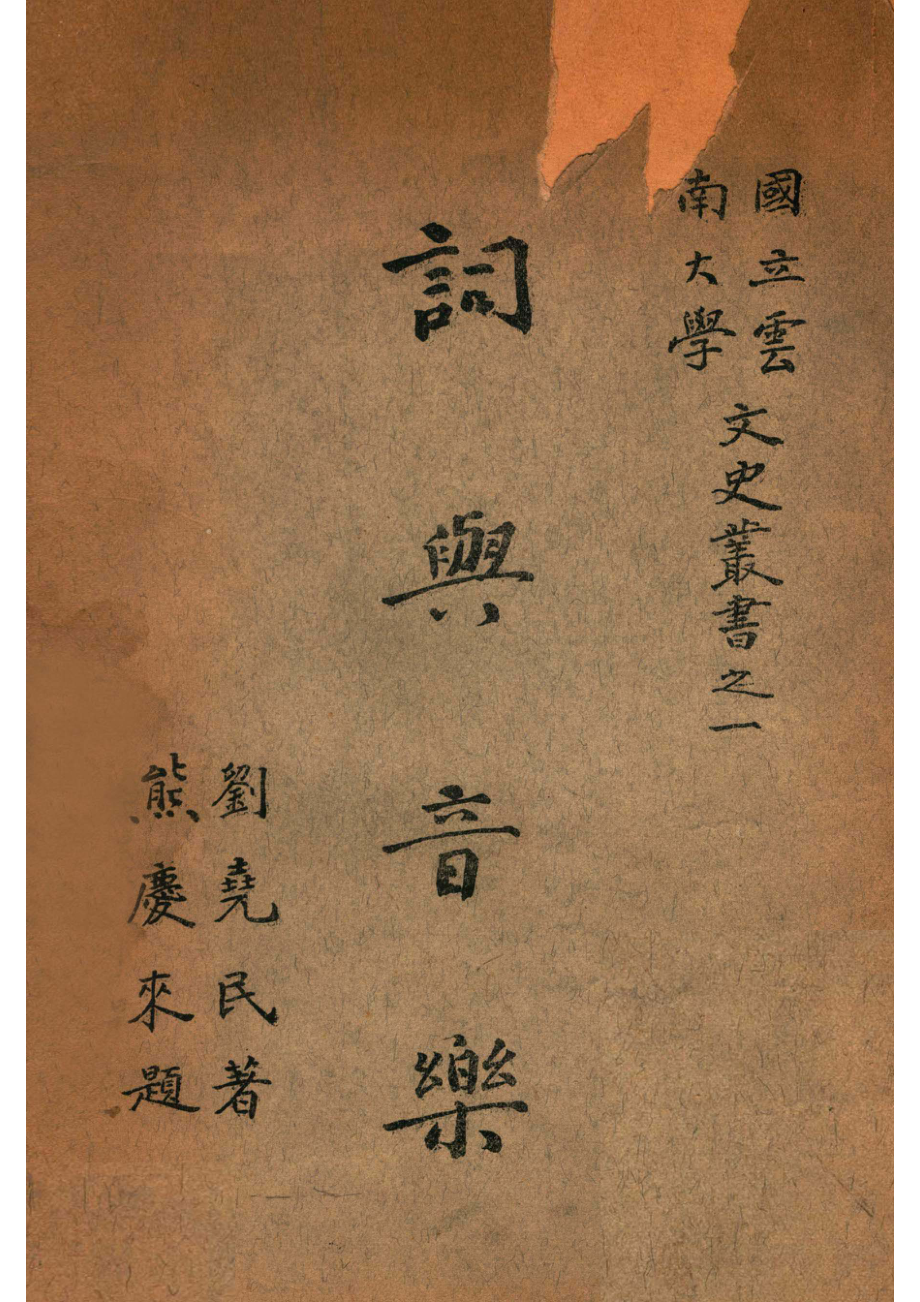 國立雲
南大學
文史叢書之一
詞與音樂
劉堯民著
熊慶來題